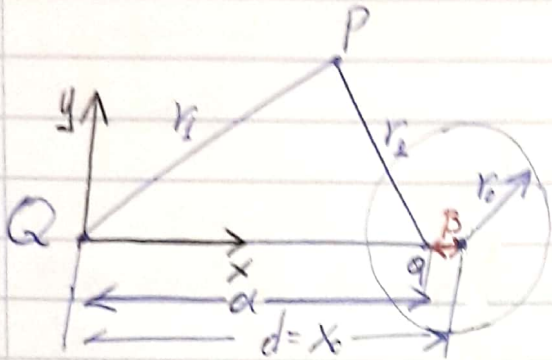 P
y
r₁
r₂
r₀
Q
β
x
q
α
d = x₀